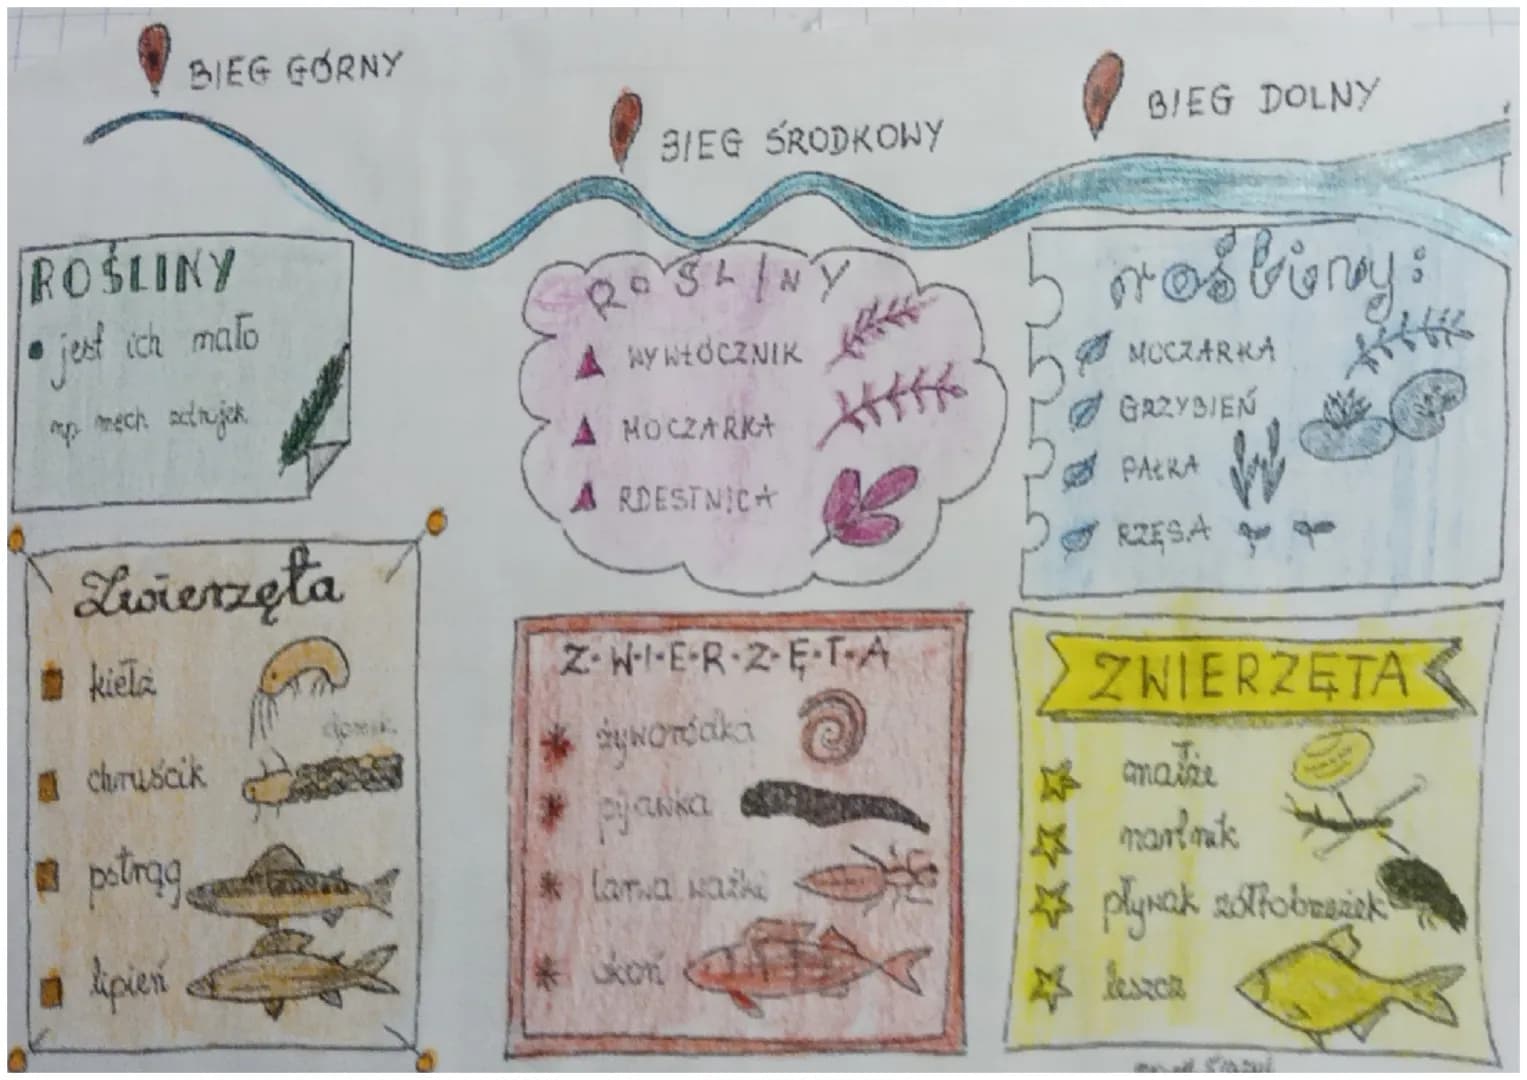 BIEG GÓRNY
BIEG ŚRODKOWY
BIEG DOLNY
ROŚLINY
• jest ich mało
np. mech zdrojek
ROŚLINY
WYWŁÓCZNIK
MOCZARKA
RDESTNICA
rośliny:
MOCZARKA
GRZYBIEŃ
PAŁKA
RZĘSA
Zwierzęta
kiełż
domek
chruścik
pstrąg
lipień
Z·W·I·E·R·Z·Ę·T·A
żyworódka
pijawka
larwa ważki
okoń
ZWIERZĘTA
małże
nartnik
pływak żółtobrzeżek
leszcz